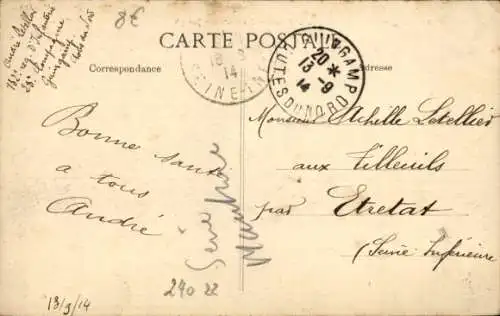 8€
André
132e reg. d'Infanterie
28e Compagnie
Guingamp
Côtes du Nord
CARTE POSTALE
Correspondance
Adresse
14
SEINE-INF
GUINGAMP
20 *
13 -9
14
COTES DU NORD
Monsieur Achille Letellier
aux Tilleuils
par Etretat
(Seine Inférieure
Bonne santé
à tous
André
Seine
Maritime
240 22
13/9/14